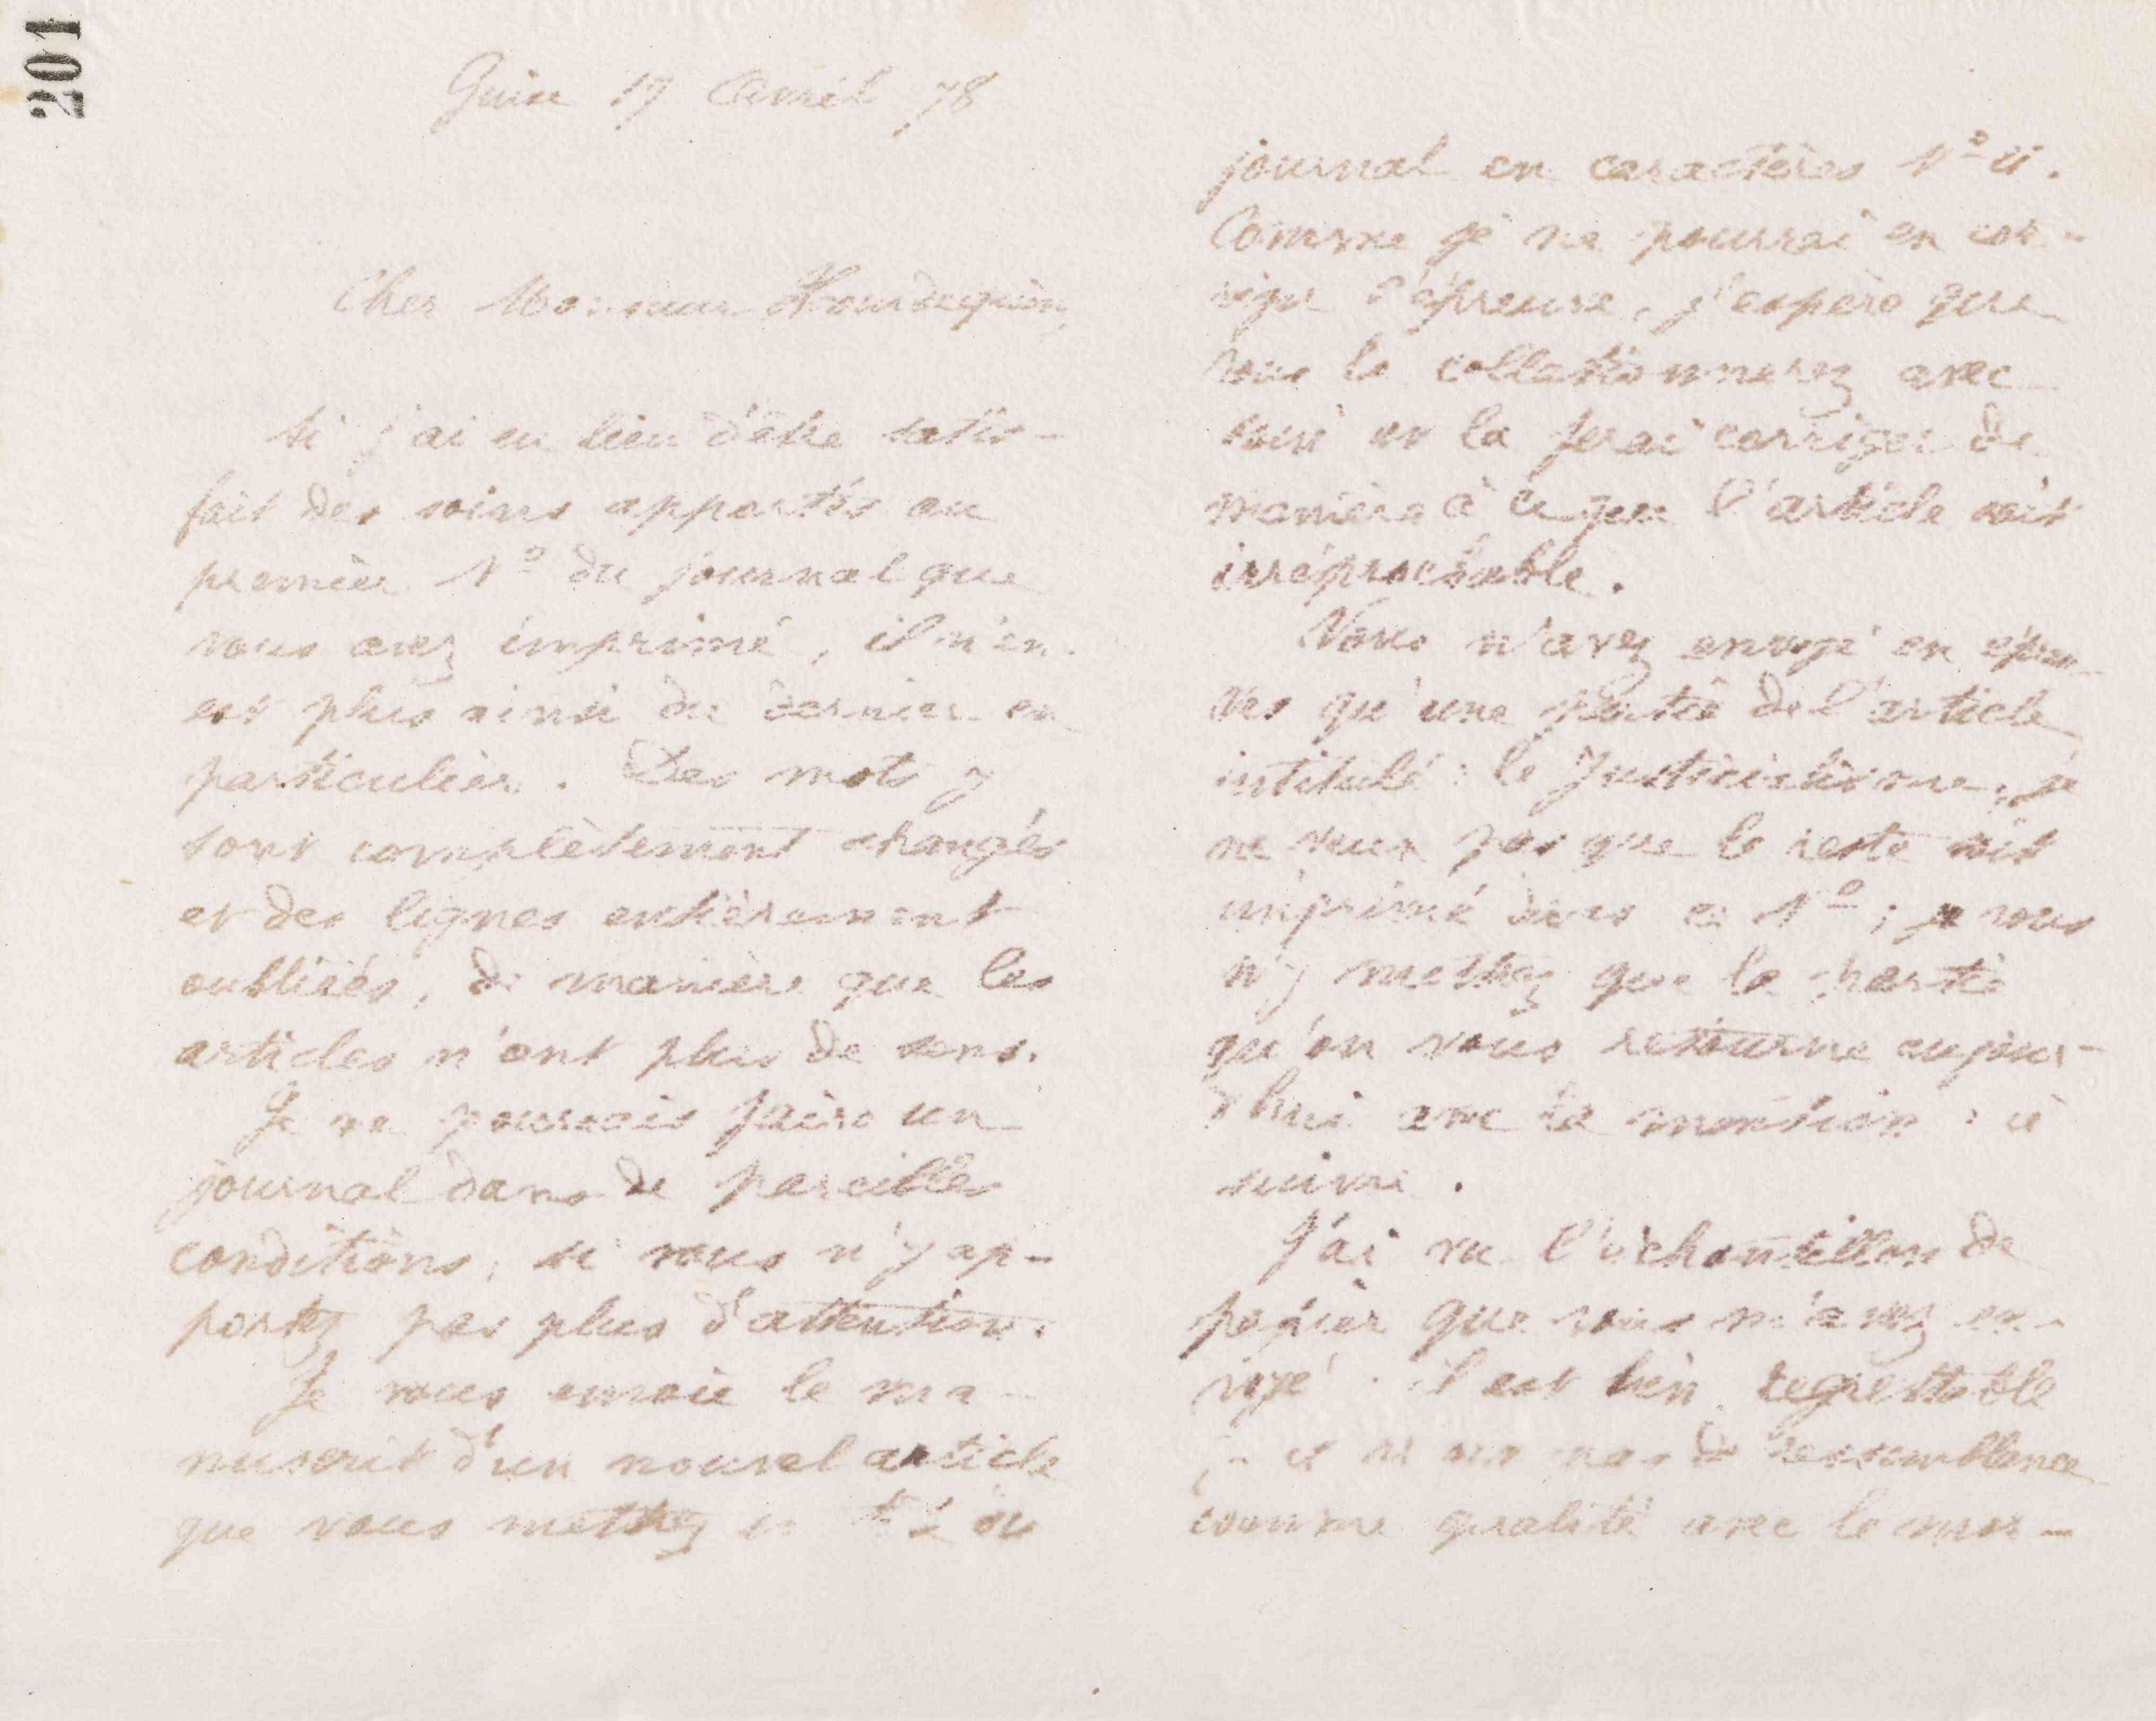 201
Guise 17 Avril 78
Cher Monsieur Hourdequin,
Si j'ai eu lieu d'être satis-
fait des soins apportés au
premier Nº du journal que
vous avez imprimé, il n'en
est plus ainsi du dernier en
particulier. Des mots y
sont complètement changés
et des lignes entièrement
oubliées, de manière que les
articles n'ont plus de sens.
Je ne pourrais faire un
journal dans de pareilles
conditions, si vous n'y ap-
portez pas plus d'attention.
Je vous envoie le ma-
nuscrit d'un nouvel article
que vous mettrez en tête du
journal en caractères Nº 11.
Comme je ne pourrai en cor-
riger l'épreuve, j'espère que
vous la collationnerez avec
soin et la ferai corriger de
manière à ce que l'article soit
irréprochable.
Vous n'avez envoyé en épreu-
ves qu'une partie de l'article
intitulé : le Justicialisme, je
ne veux pas que le reste soit
imprimé dans ce Nº ; vous
n'y mettrez que la partie
qu'on vous retourne aujour-
d'hui avec la mention : à
suivre.
J'ai vu l'échantillon de
papier que vous m'avez en-
voyé. il est bien regrettable
pas de ressemblance
comme qualité avec le mon-